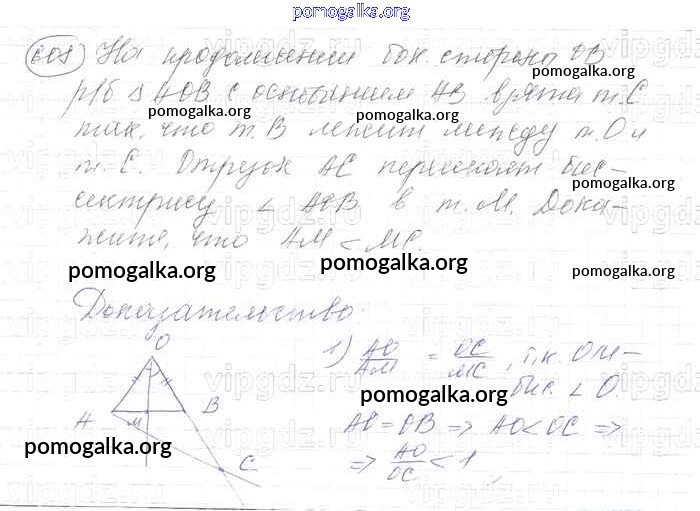 pomogalka.org
608) На продолжении бок. стороны OB
pomogalka.org
р/б Δ AOB с основанием AB взята т. C
pomogalka.org pomogalka.org
так, что т. B лежит между т. O и
т. C. Отрезок AC пересекает бис-
pomogalka.org
сектрису ∠ AOB в т. M. Дока-
жите, что AM < MC.
pomogalka.org pomogalka.org pomogalka.org
Доказательство:
O
A
B
M
C
1) AO/AM = OC/MC, т.к. OM -
бис. ∠ O.
pomogalka.org
AO = OB => AO < OC =>
=> AO/OC < 1,
pomogalka.org
vipgdz.ru